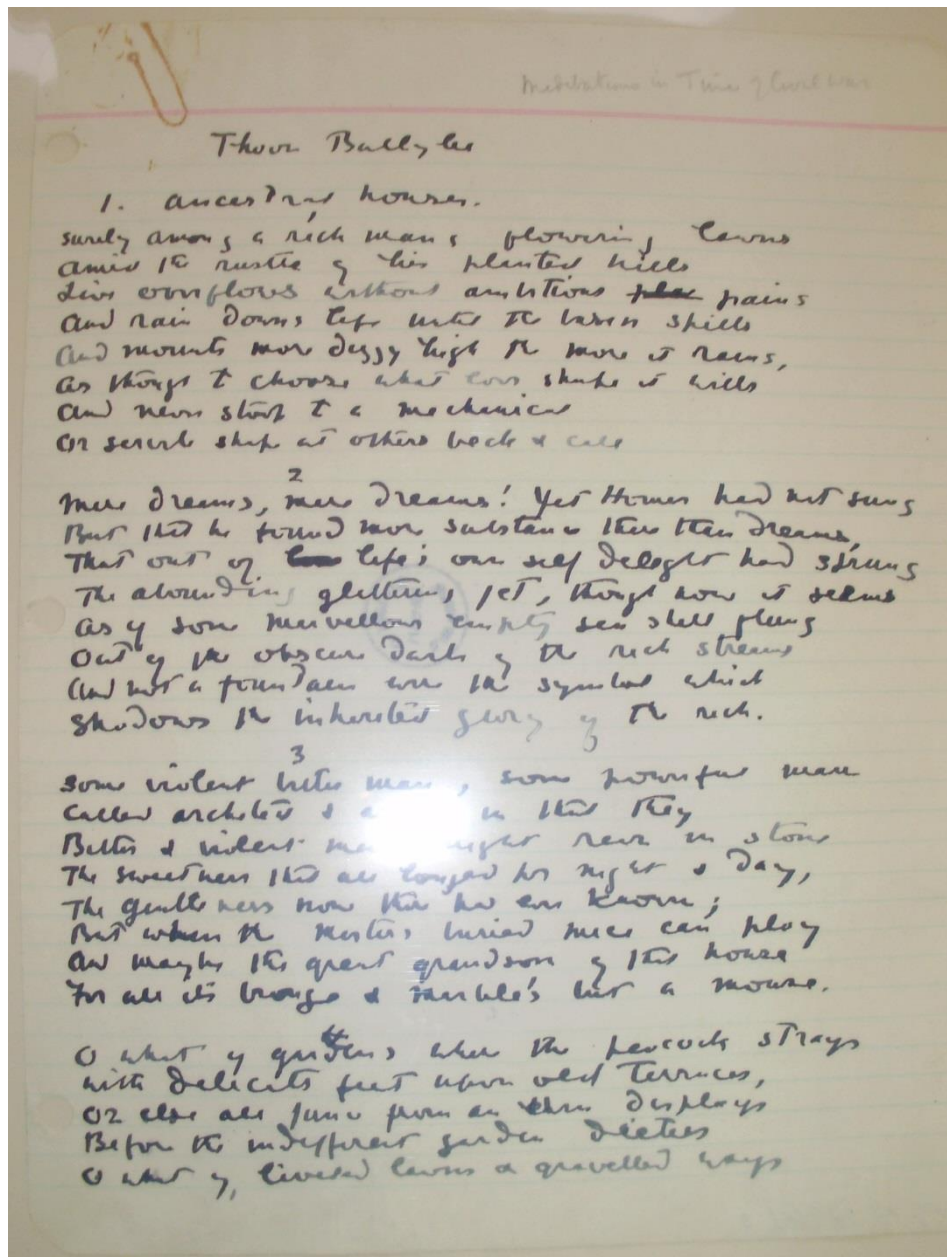 Meditations in Time of Civil War
Thoor Ballylee
1. Ancestral houses.
Surely among a rich mans flowering lawns
Amid the rustle of his planted hills
Life overflows without ambitious pains
And rain downs life until the basin spills
And mounts more dizzy high the more it rains,
As though to choose what ever shape it wills
And never stoop to a mechanical
Or servile shape at others beck & call
2
Mere dreams, mere dreams! Yet Homer had not sung
But that he found more substance there than dreams,
That out of life's own self delight had sprung
The abounding glittering jet, though now it seems
As if some marvellous empty sea shell flung
Out of the obscure dark of the rich streams
And not a fountain were the symbol which
Shadows the inherited glory of the rich.
3
Some violent bitter man, some powerful man
Called architect & in that they
Bitter & violent might rear in stone
The sweetness that all longed for night & day,
The gentleness none there had ever known;
But when the masters buried mice can play
And maybe the great grandson of that house
For all its bronze & marble's but a mouse.
4
O what if gardens where the peacock strays
With delicate feet upon old terraces,
Or else all Juno from an displays
Before the indifferent garden dieties
O what if, lawns & gravelled ways